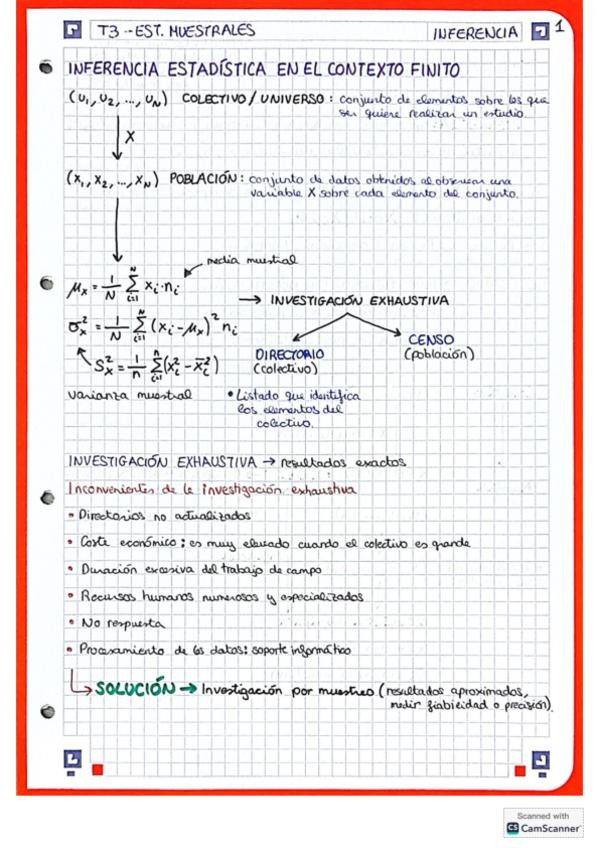 T3 - EST. MUESTRALES
INFERENCIA
1
INFERENCIA ESTADÍSTICA EN EL CONTEXTO FINITO
(U₁, U₂, ..., U_N) COLECTIVO / UNIVERSO : conjunto de elementos sobre los que
se quiere realizar un estudio.
X
(X₁, X₂, ..., X_N) POBLACIÓN : conjunto de datos obtenidos al observar una
variable X sobre cada elemento del conjunto.
media muestral
μ_x = 1/N Σ_{i=1}^{N} x_i · n_i
→ INVESTIGACIÓN EXHAUSTIVA
σ_x² = 1/N Σ_{i=1}^{N} (x_i - μ_x)² n_i
S_x² = 1/n Σ_{i=1}^{n} (x_i² - x̄_i²)
varianza muestral
DIRECTORIO
(colectivo)
• Listado que identifica
los elementos del
colectivo.
CENSO
(población)
INVESTIGACIÓN EXHAUSTIVA → resultados exactos
Inconvenientes de la investigación exhaustiva
• Directorios no actualizados
• Coste económico : es muy elevado cuando el colectivo es grande
• Duración excesiva del trabajo de campo
• Recursos humanos numerosos y especializados
• No respuesta
• Procesamiento de los datos : soporte informático
SOLUCIÓN → Investigación por muestreo (resultados aproximados,
medir fiabilidad o precisión).
Scanned with
CS CamScanner